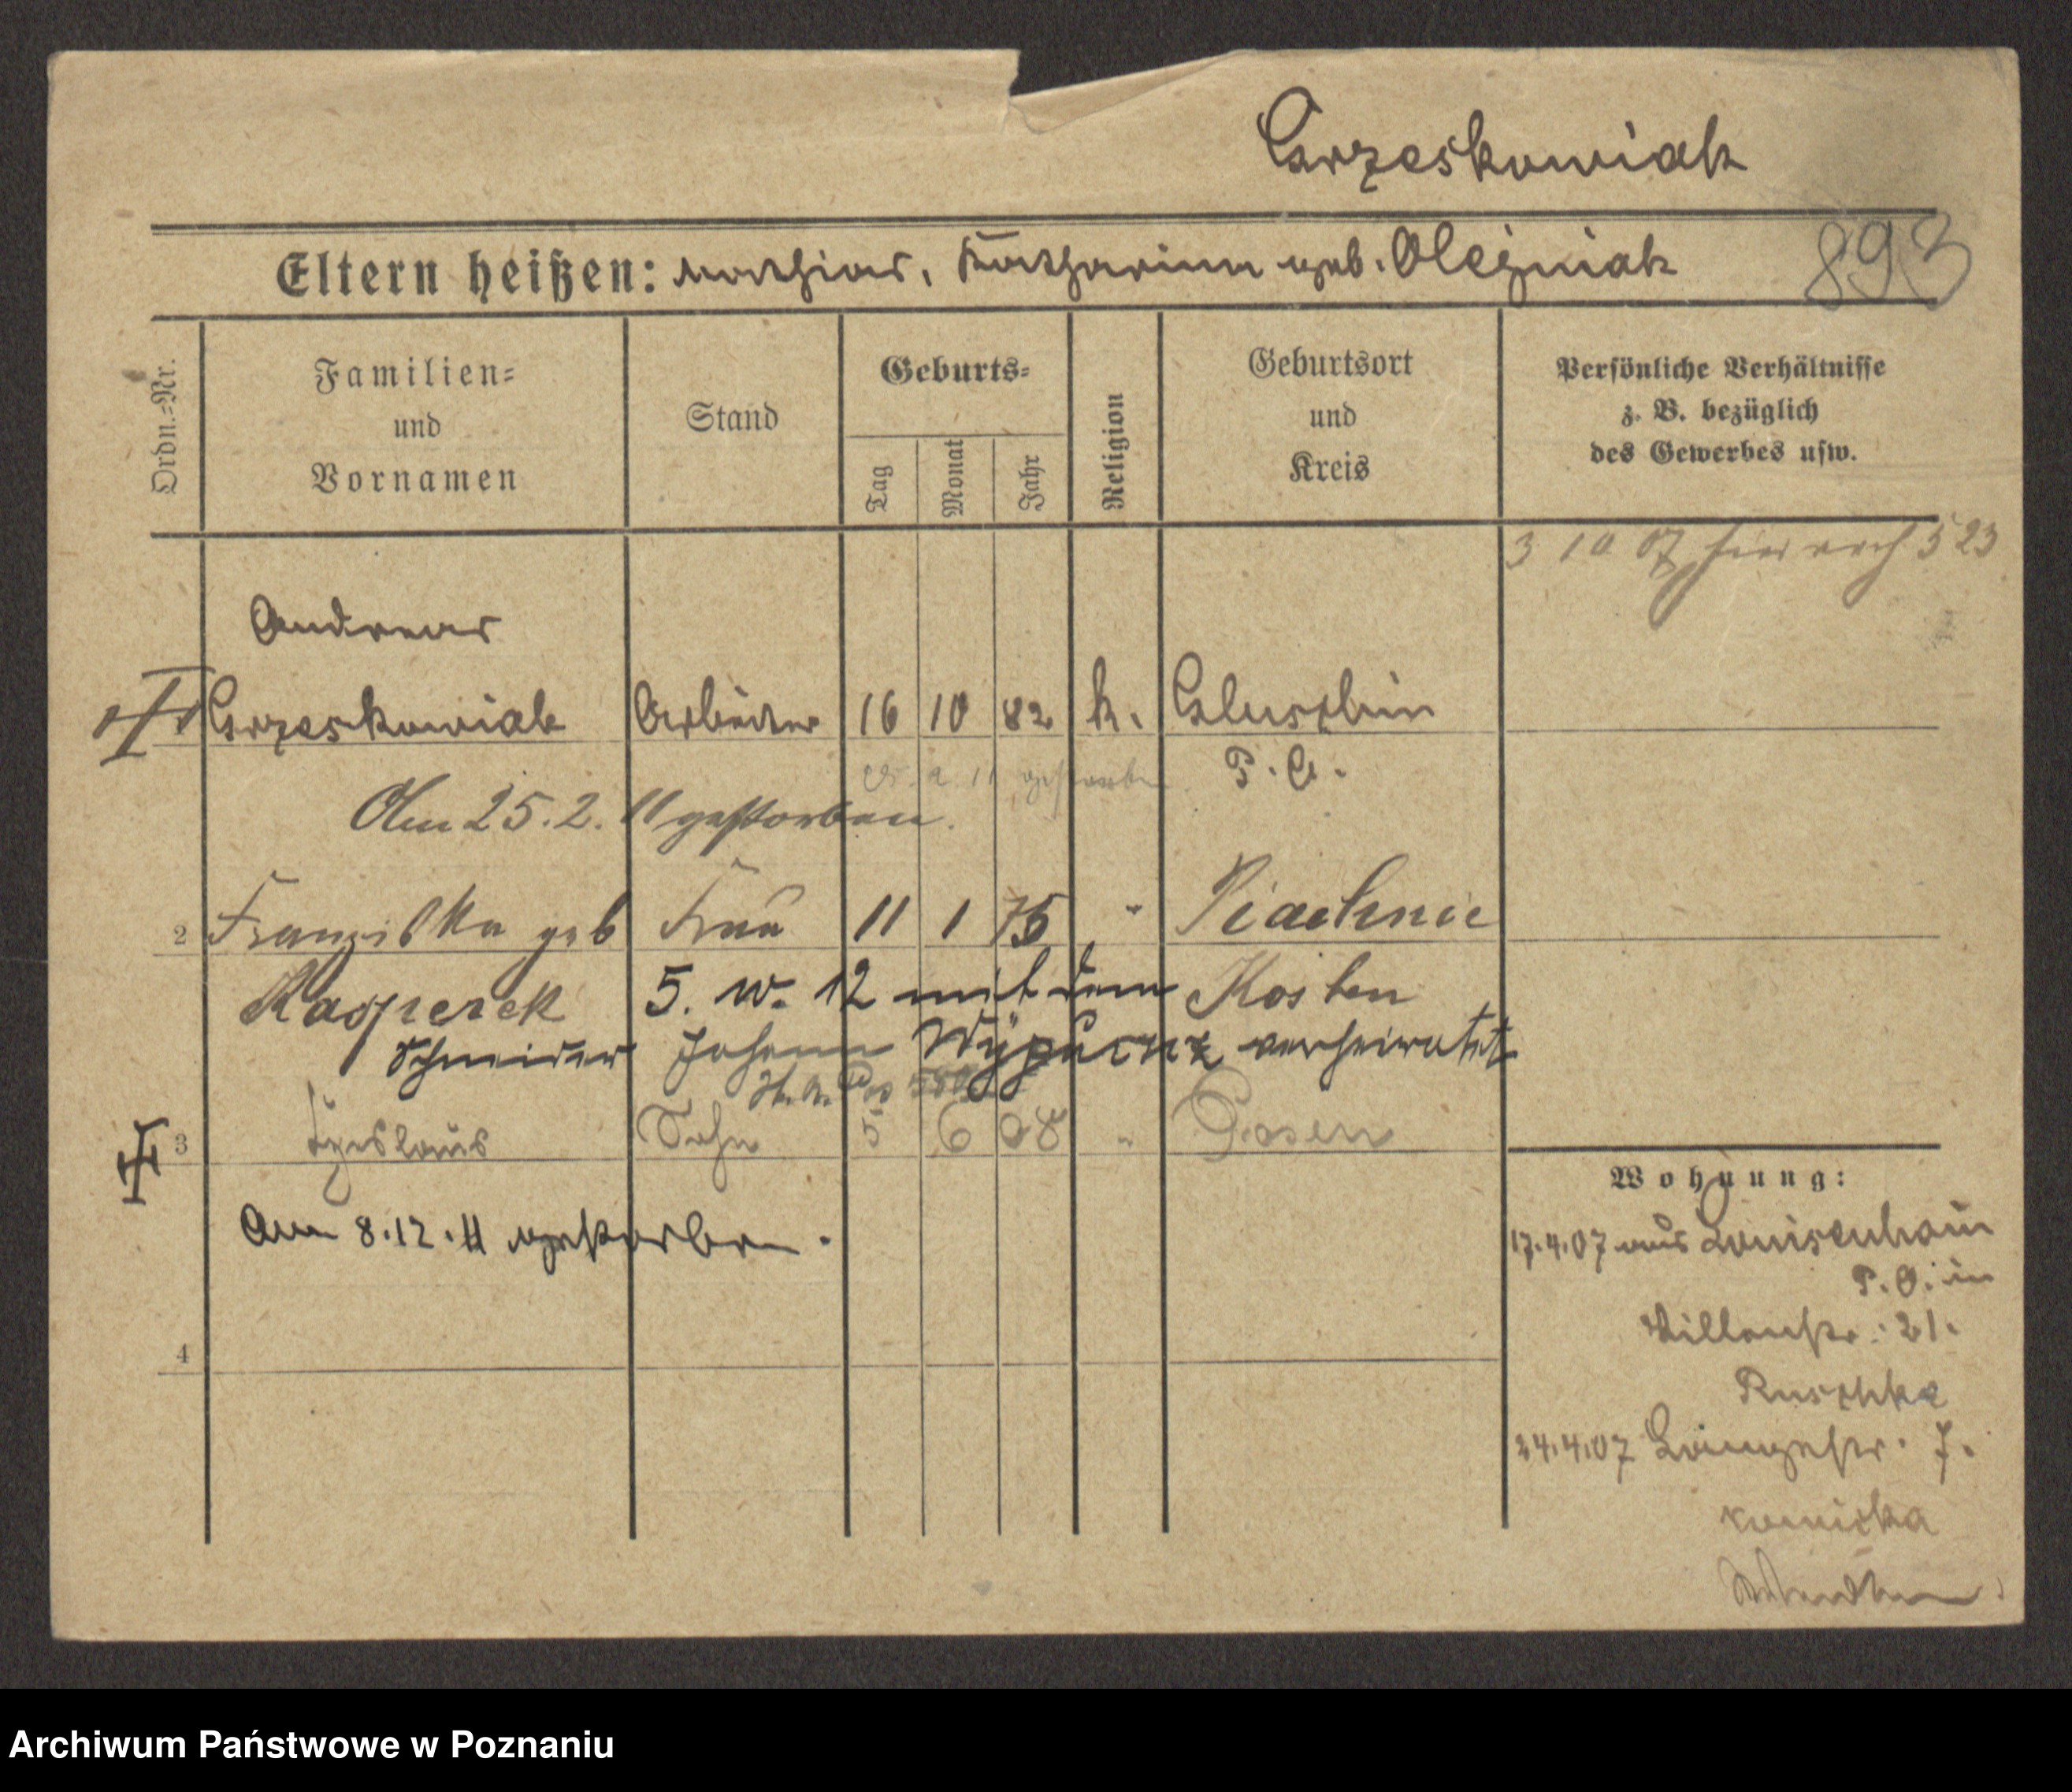 Grzeskowiak
Eltern heißen: Mathias, Katharina geb. Olejniak
893
Ordn.-Nr.
Familien-
und
Vornamen
Stand
Geburts-
Tag
Monat
Jahr
Religion
Geburtsort
und
Kreis
Persönliche Verhältnisse
z. B. bezüglich
des Gewerbes usw.
3 10 07 hier nach 523
Andreas
Grzeskowiak Arbeiter 16 10 82 k. Gluschin
P. O.
Am 25. 2. 11 gestorben.
2 Franziska geb Frau 11 1 75 " Piachnie
Kasperek 5. 12 mit dem Kosten
Schneider Johann verheiratet
3 Czeslaus Sohn 5 6 08 " Posen
Am 8.12.11 gestorben.
4
Wohnung:
17.4.07 aus Louisenhain
P. O. in
Villenstr. 21.
Ruschke
24.4.07 Langestr. 7.
Archiwum Państwowe w Poznaniu